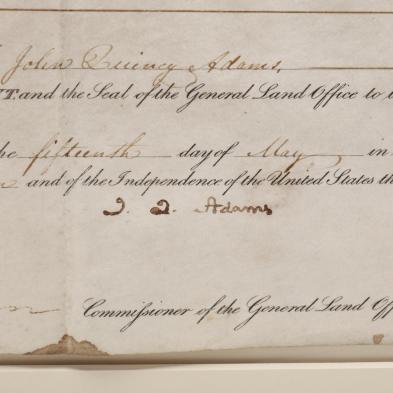 John Quincy Adams,
T. and the Seal of the General Land Office to
the fifteenth day of May in
and of the Independence of the United States th
J. Q. Adams
Commissioner of the General Land Off